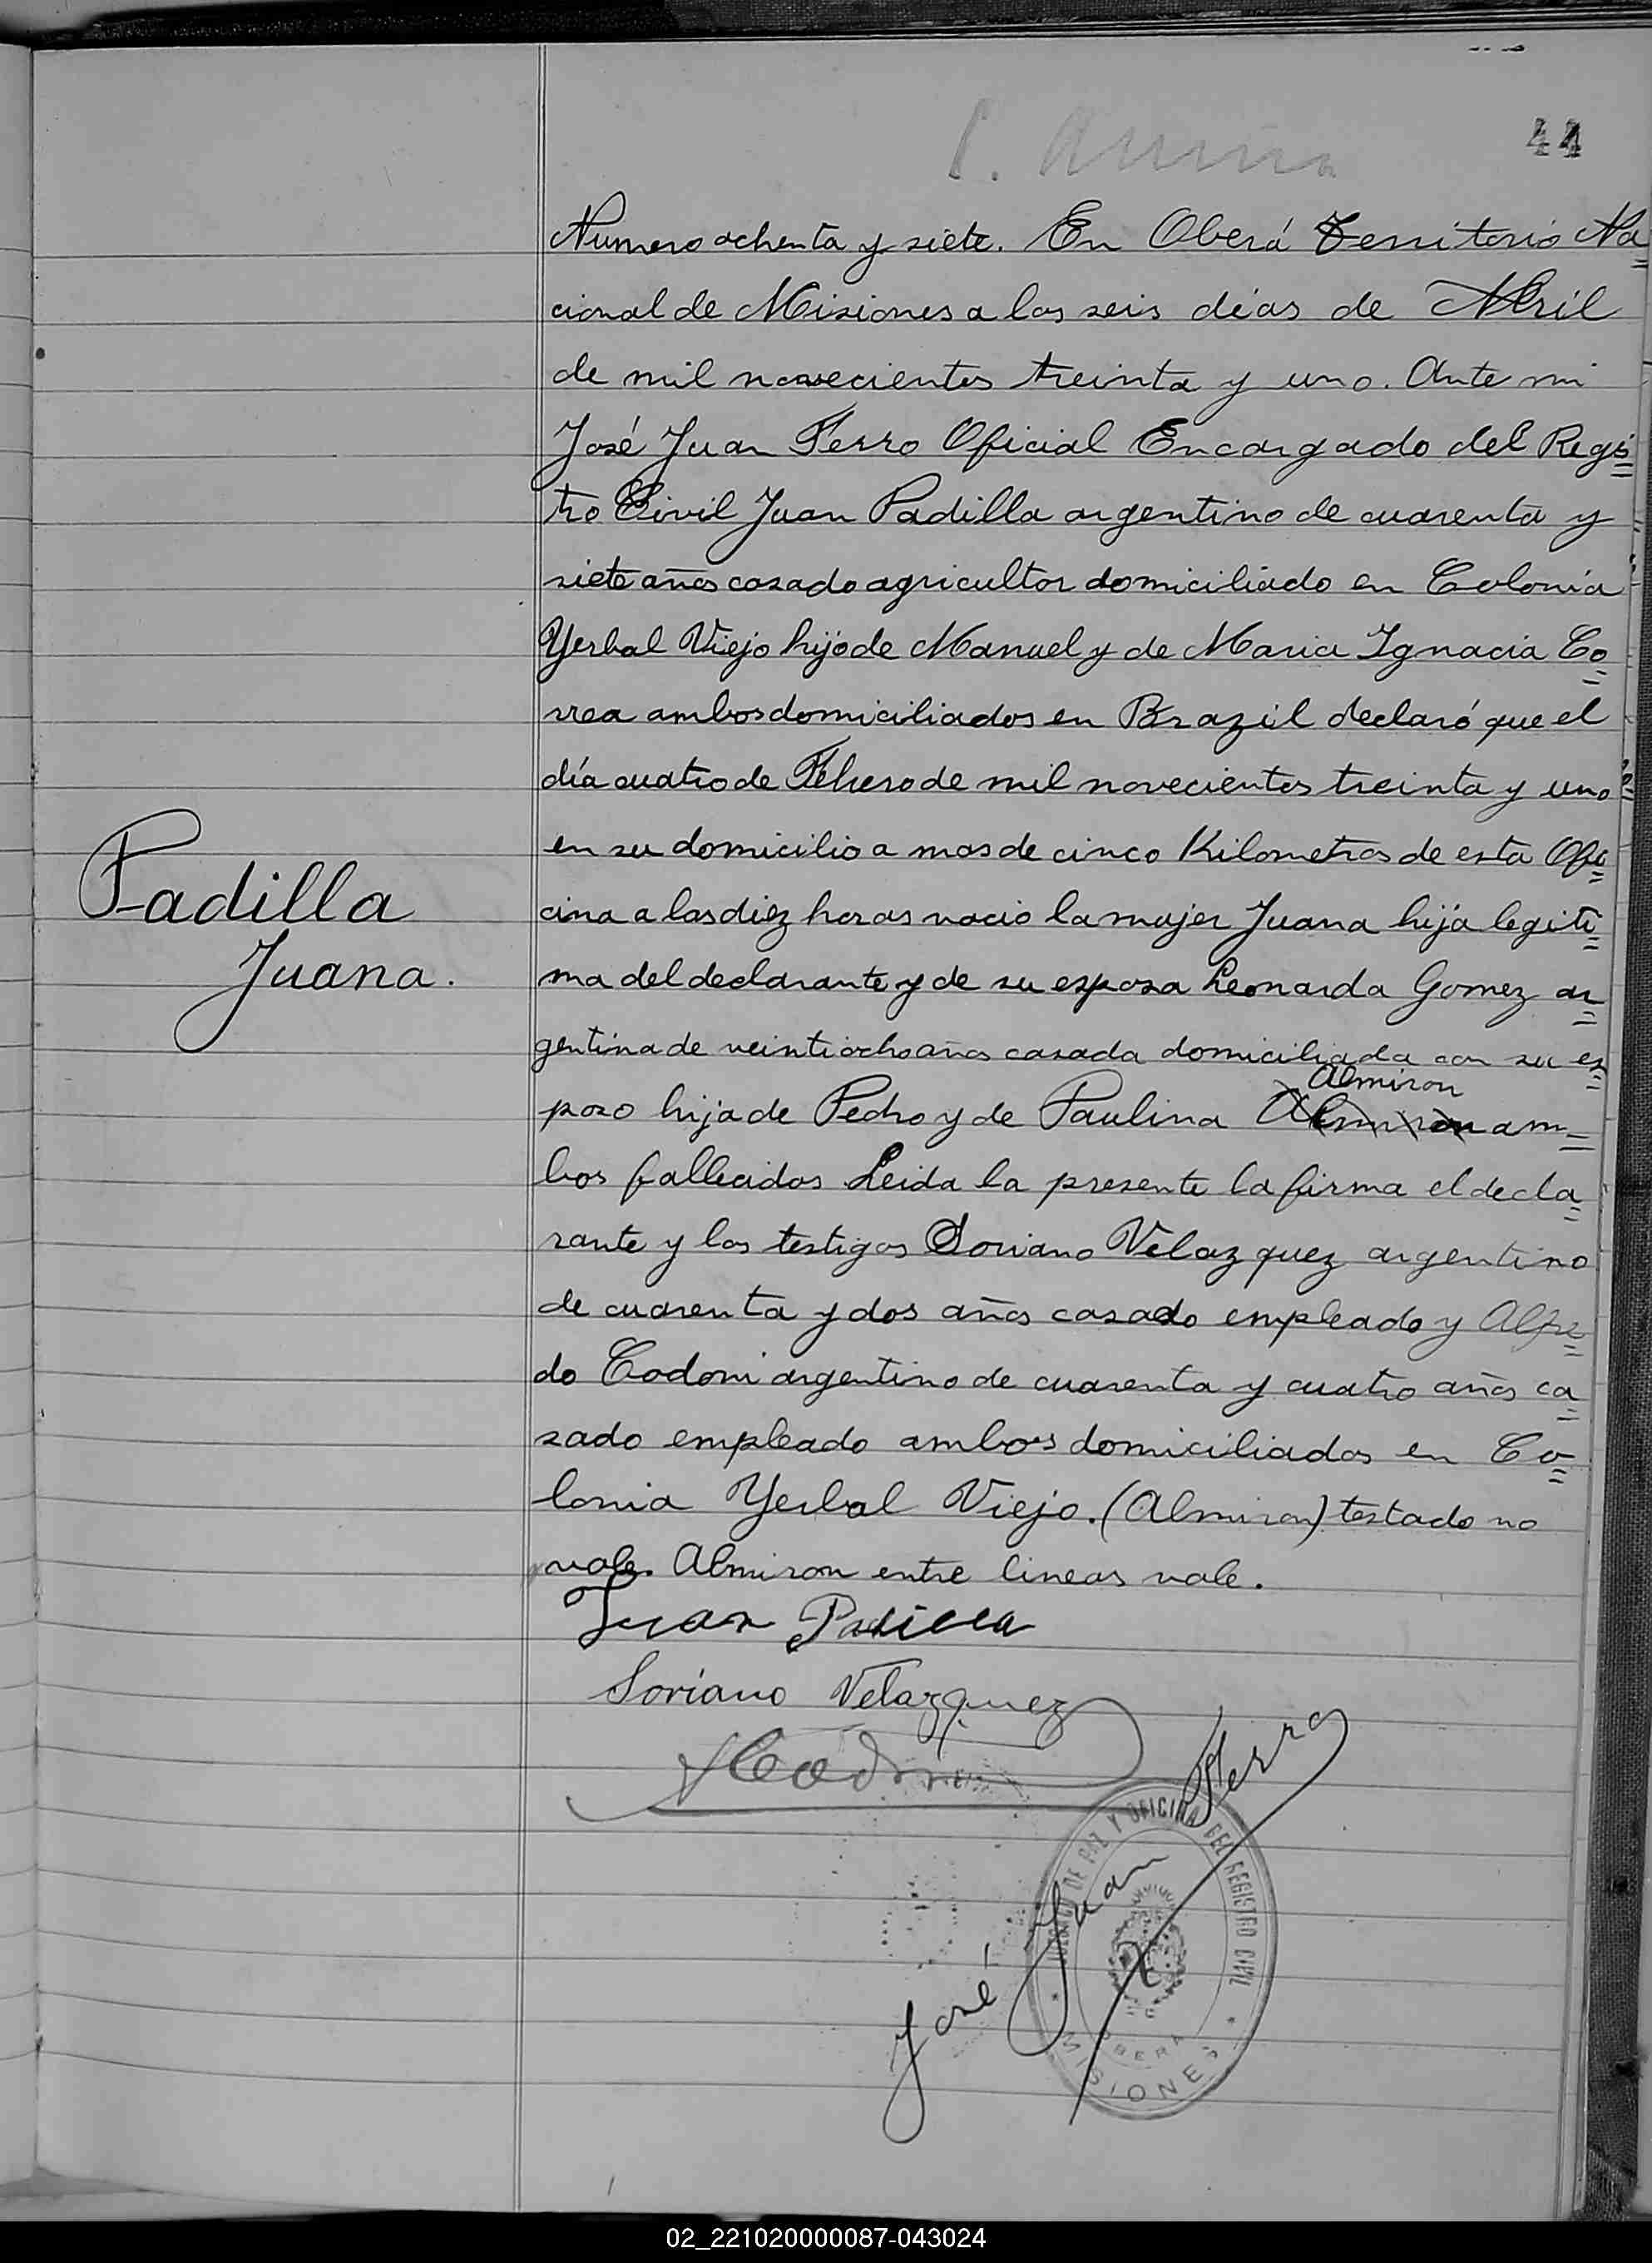 44
Numero ochenta y siete. En Oberá Territorio Na=
cional de Misiones a los seis días de Abril
de mil novecientos treinta y uno. Ante mi
José Juan Ferro Oficial Encargado del Regis=
tro Civil Juan Padilla argentino de cuarenta y
siete años casado agricultor domiciliado en Colonia
Yerbal Viejo hijo de Manuel y de Maria Ignacia Co=
rrea ambos domiciliados en Brazil declaró que el
día cuatro de Febrero de mil novecientos treinta y uno
en su domicilio a mas de cinco Kilometros de esta Ofi=
cina a las diez horas nacio la mujer Juana hija legiti=
Padilla
Juana.
ma del declarante y de su esposa Leonarda Gomez ar=
gentina de veintiocho años casada domiciliada con su es=
Almiron
poso hija de Pedro y de Paulina Almiron am=
bos fallecidos Leida la presente la firma el decla=
rante y los testigos Soriano Velazquez argentino
de cuarenta y dos años casado empleado y Alfre=
do Codoni argentino de cuarenta y cuatro años ca=
sado empleado ambos domiciliados en Co=
lonia Yerbal Viejo. (Almiron) testado no
vale. Almiron entre lineas vale.
Juan Padilla
Soriano Velazquez
José Juan Ferro
JUZGADO DE PAZ Y OFICINA DEL REGISTRO CIVIL
OBERA
MISIONES
02_221020000087-043024